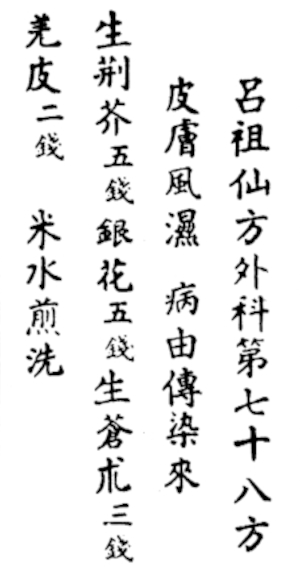 呂祖仙方外科第七十八方
皮膚風濕 病由傳染來
生荆芥五錢銀花五錢生蒼朮三錢
羌皮二錢 米水煎洗